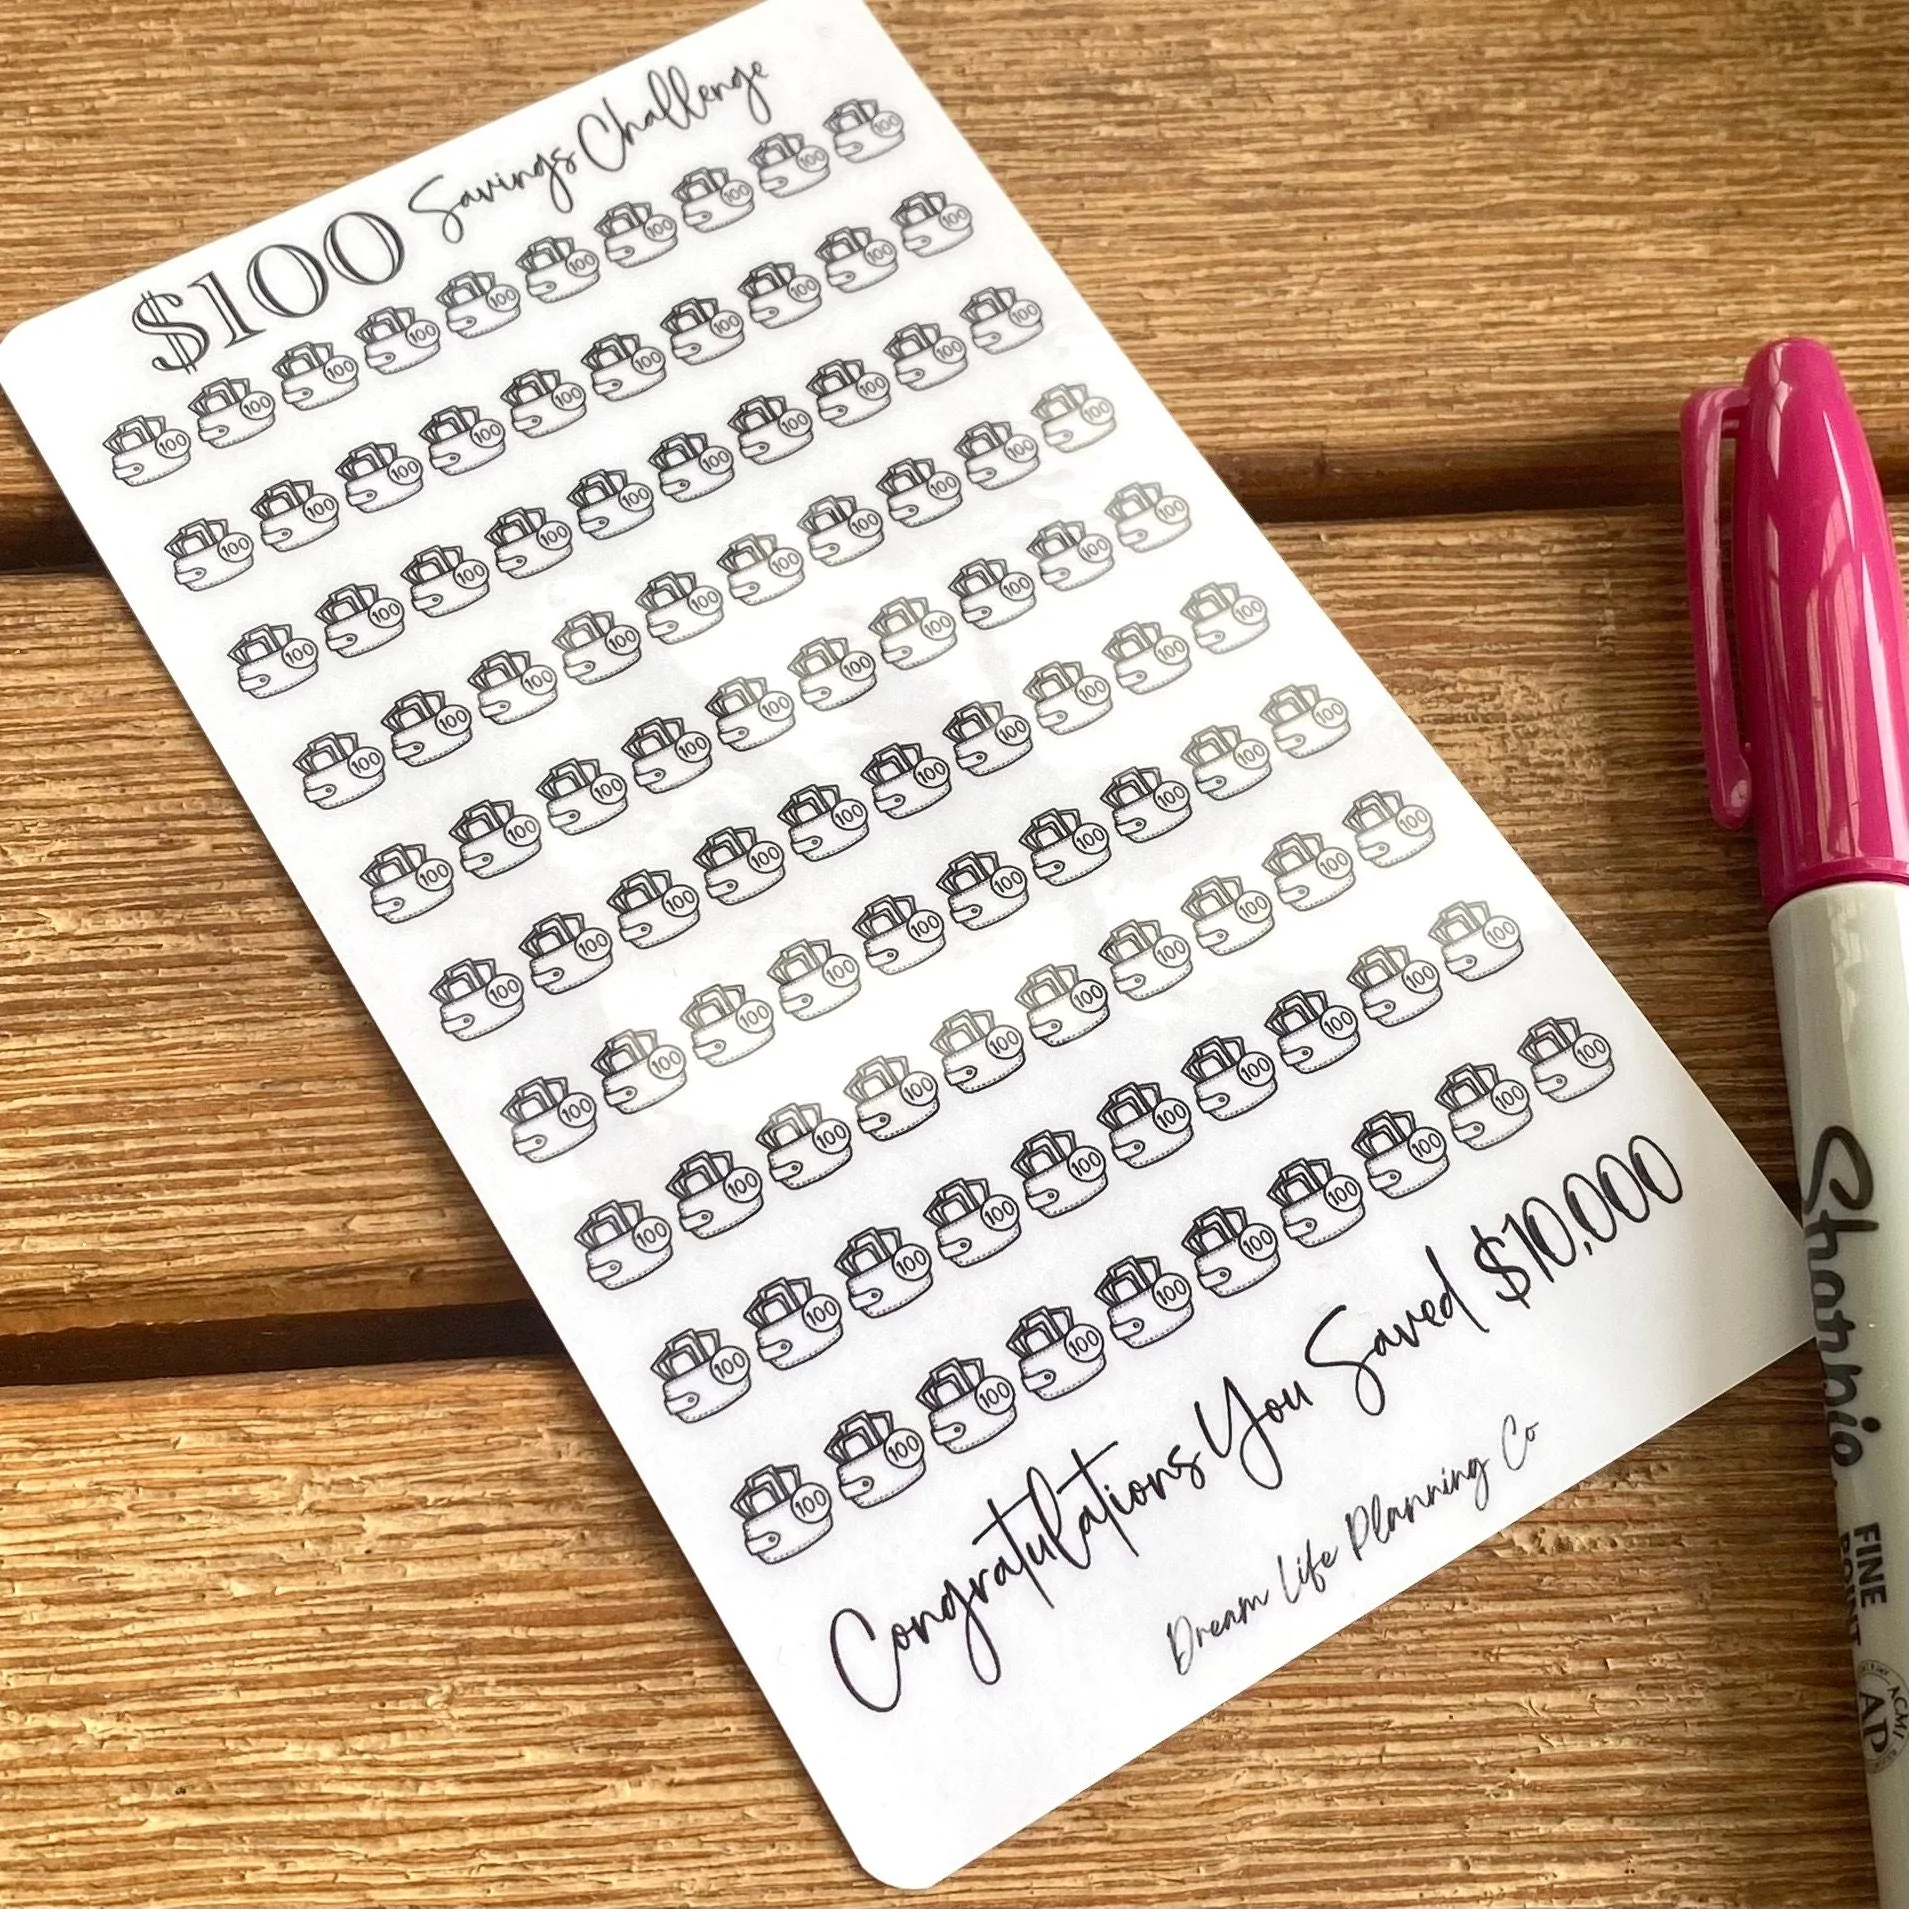 $100 Savings Challenge
100 100 100 100 100 100 100 100 100 100
100 100 100 100 100 100 100 100 100 100
100 100 100 100 100 100 100 100 100 100
100 100 100 100 100 100 100 100 100 100
100 100 100 100 100 100 100 100 100 100
100 100 100 100 100 100 100 100 100 100
100 100 100 100 100 100 100 100 100 100
100 100 100 100 100 100 100 100 100 100
100 100 100 100 100 100 100 100 100 100
100 100 100 100 100 100 100 100 100 100
Congratulations You Saved $10,000
Dream Life Planning Co
Sharpie
FINE
POINT
ACMI
AP